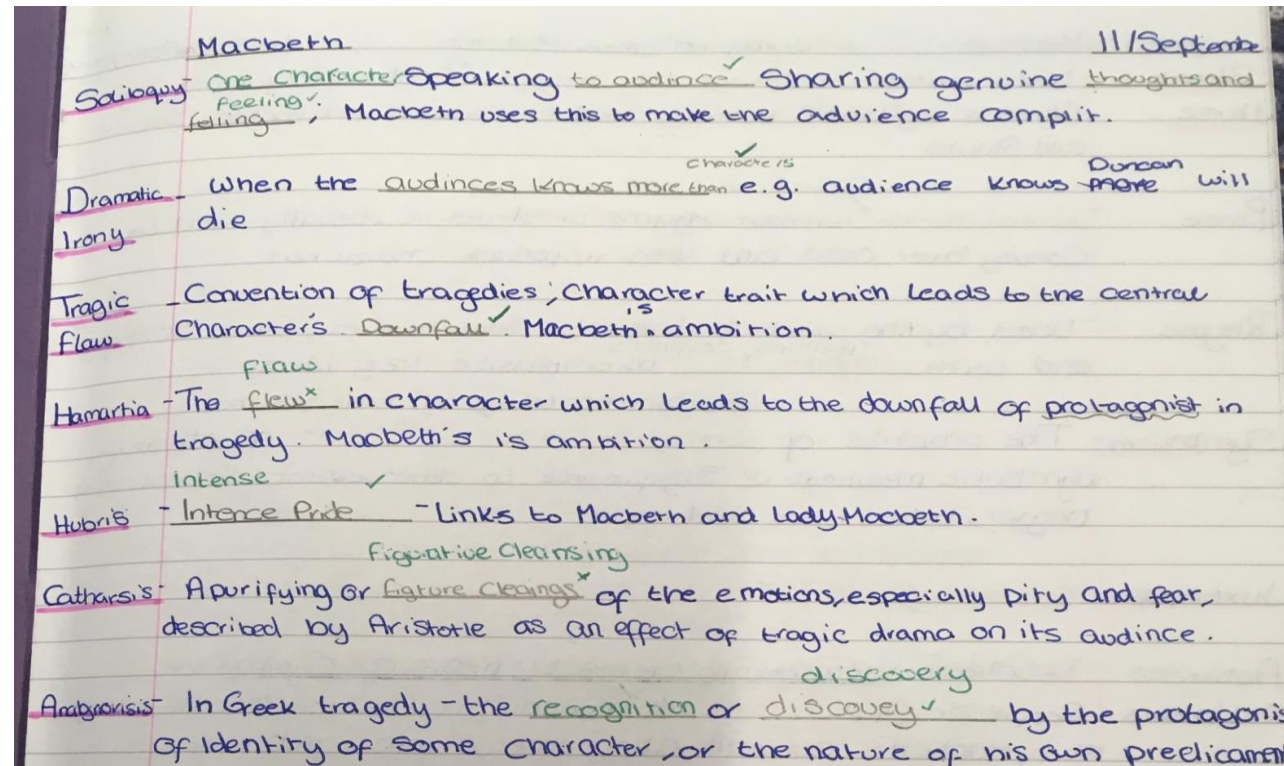 Macbeth 11/Septembe
Soliloquy - one character Speaking to audince ✓ Sharing genuine thoughts and
feeling ✓
felling, Macbeth uses this to make the advience complit.
characters ✓ Duncan
Dramatic - When the audinces knows more than e.g. audience knows more will
Irony die
Tragic - Convention of tragedies; Character trait which leads to the central
Flaw Character's Downfall ✓. Macbeth's is ambition.
Flaw
Hamartia - The flew x in character which leads to the downfall of protagonist in
tragedy. Macbeth's is ambition.
Intense ✓
Hubris - Intence Pride - Links to Macbeth and Lady Macbeth.
Figurative Cleansing
Catharsis - A purifying or figture cleaings x of the emotions, especially pity and fear,
described by Aristotle as an effect of tragic drama on its audince.
discovery
Anagnorisis - In Greek tragedy - the recognition or discouey ✓ by the protagonis
of identity of some character, or the nature of his own preelicamen